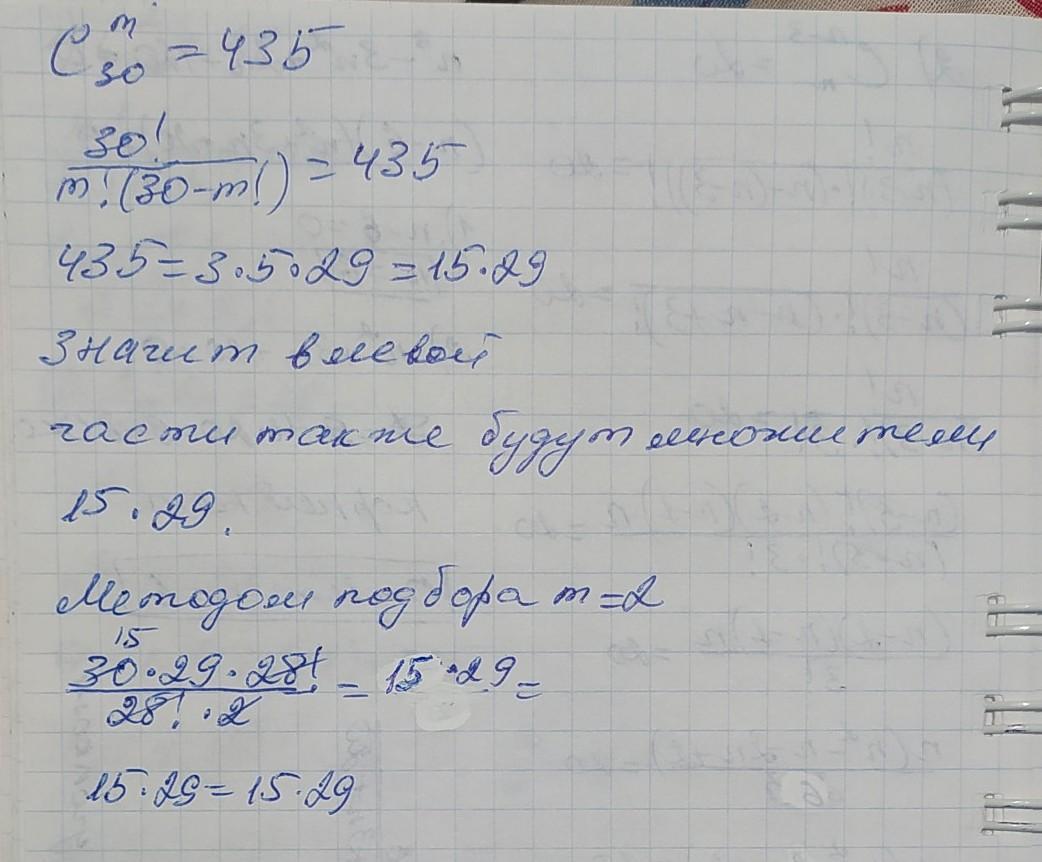 C₃₀ᵐ = 435
30! / m!(30-m!) = 435
435 = 3·5·29 = 15·29
Значит в левой
части также будут множители
15·29.
Методом подбора m=2
15
30·29·28! / 28!·2 = 15·29 =
15·29 = 15·29